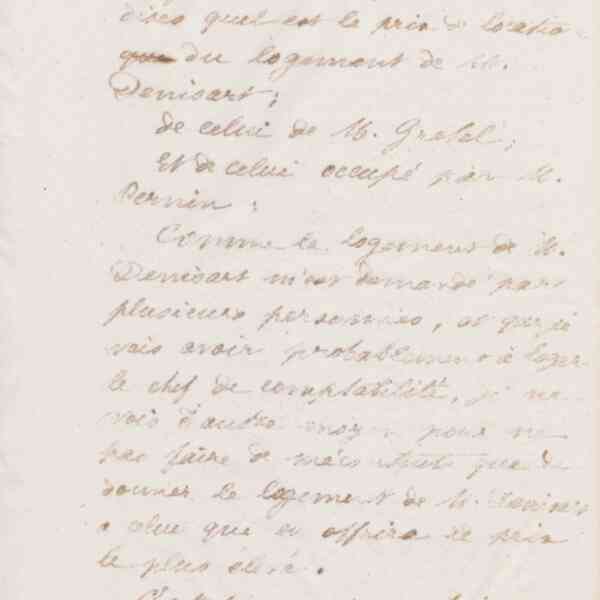 dites quel est le prix de locatio
du logement de M.
Denisart;
de celui de M. Grebel;
Et de celui occupé par M.
Pernin:
Comme le logement de M.
Denisart m'est demandé par
plusieurs personnes, et que je
vais avoir probablement à loger
le chef de comptabilité, je ne
vois d'autre moyen pour ne
pas faire de mécontents que de
donner le logement de M. Denisart
a celui que en offrira le prix
le plus élevé.